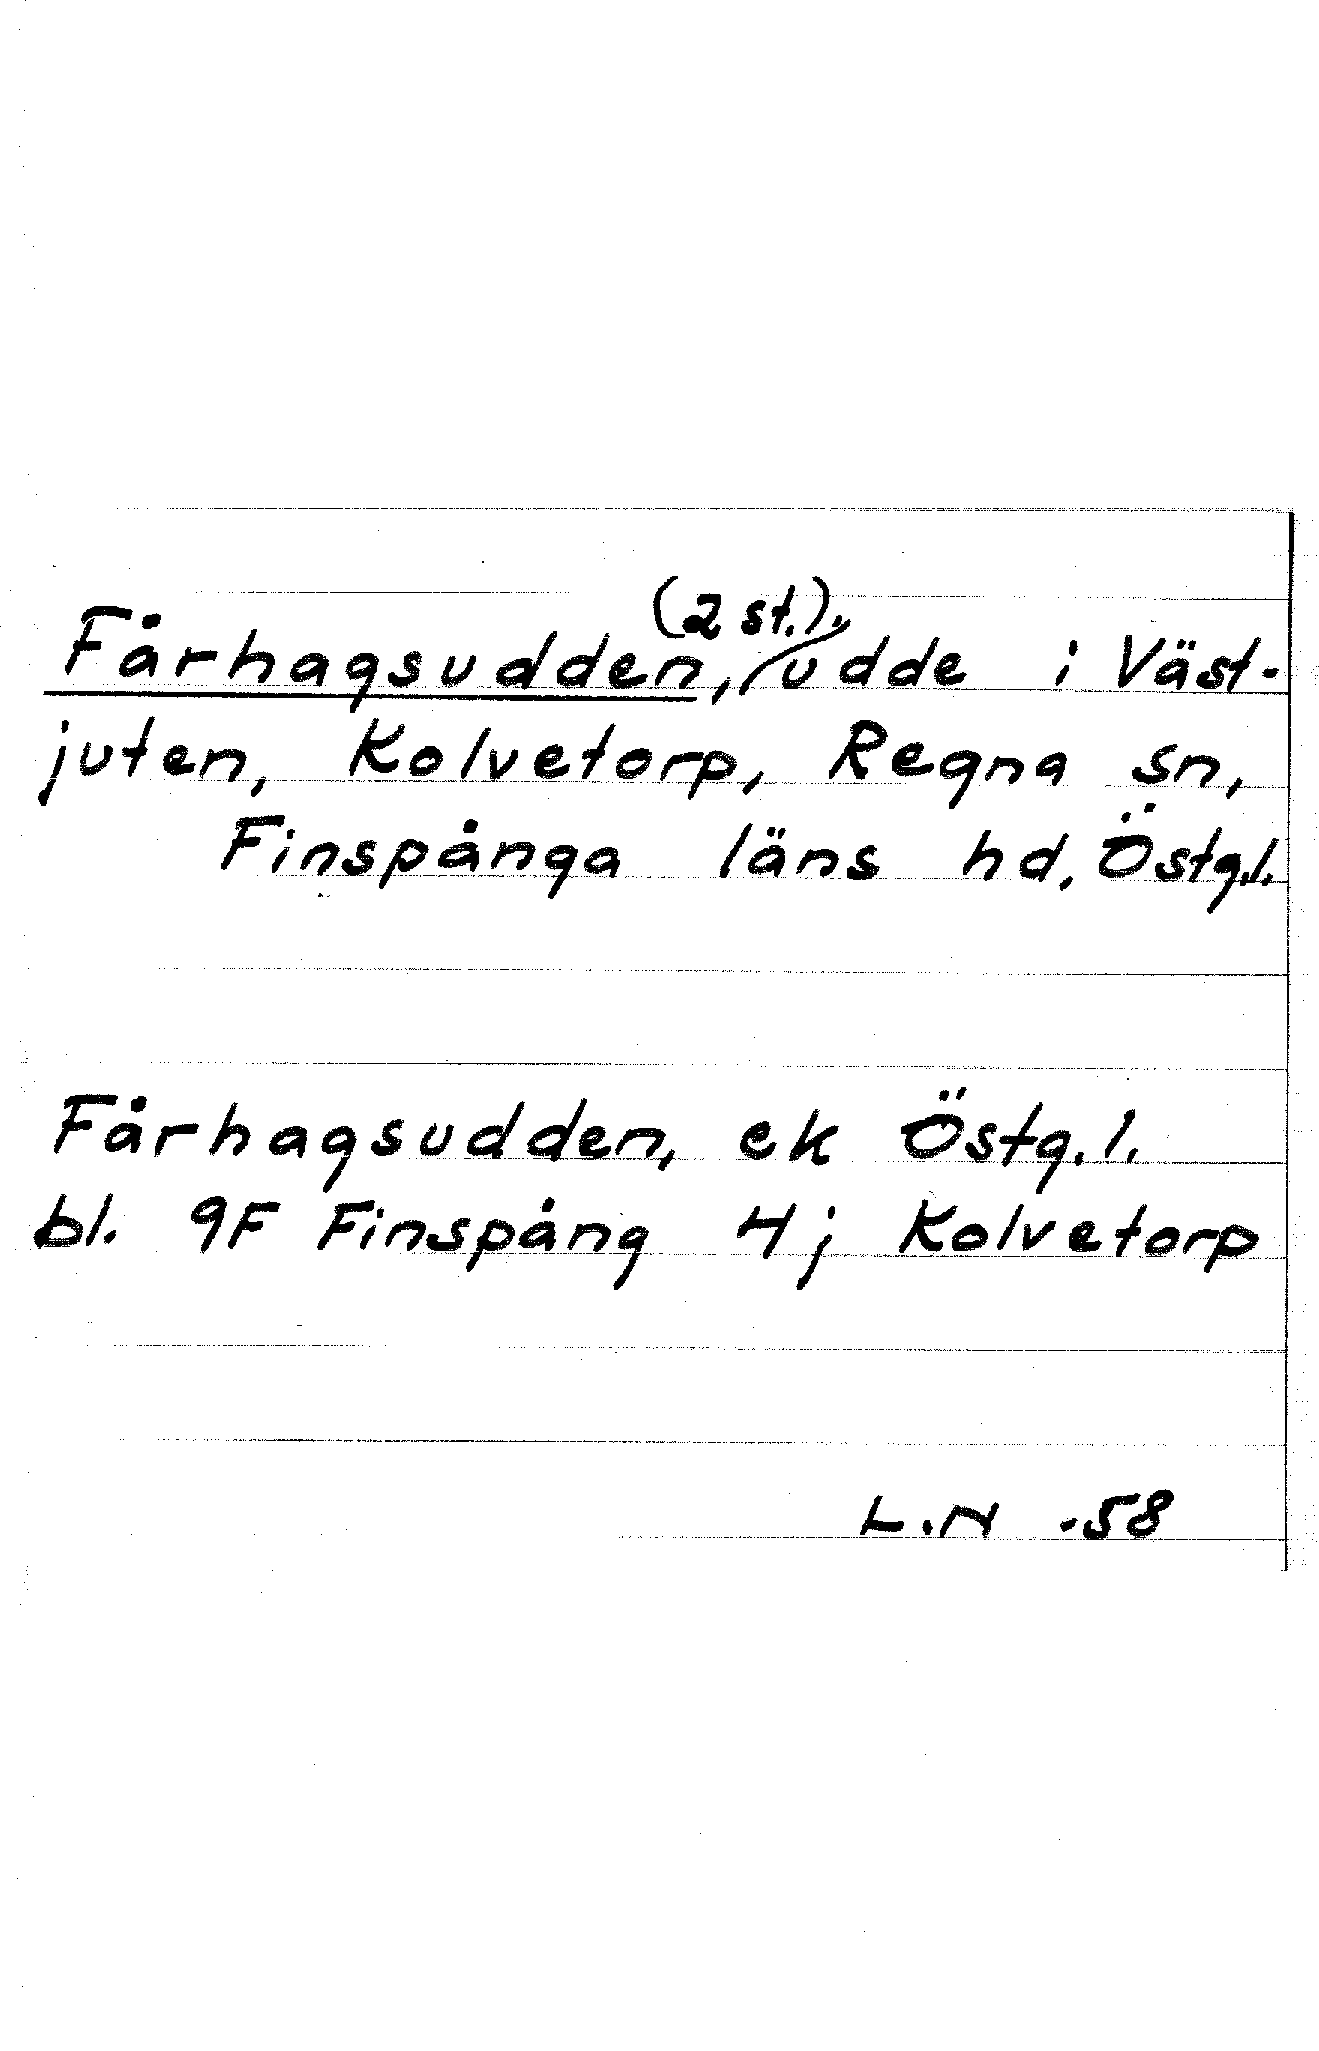 Fårhagsudden, (2 st.), udde i Väst-
juten, Kolvetorp, Regna sn,
Finspånga läns hd, Östg.l.
Fårhagsudden, ek Östg.l.
bl. 9F Finspång 4j Kolvetorp
L.N -58